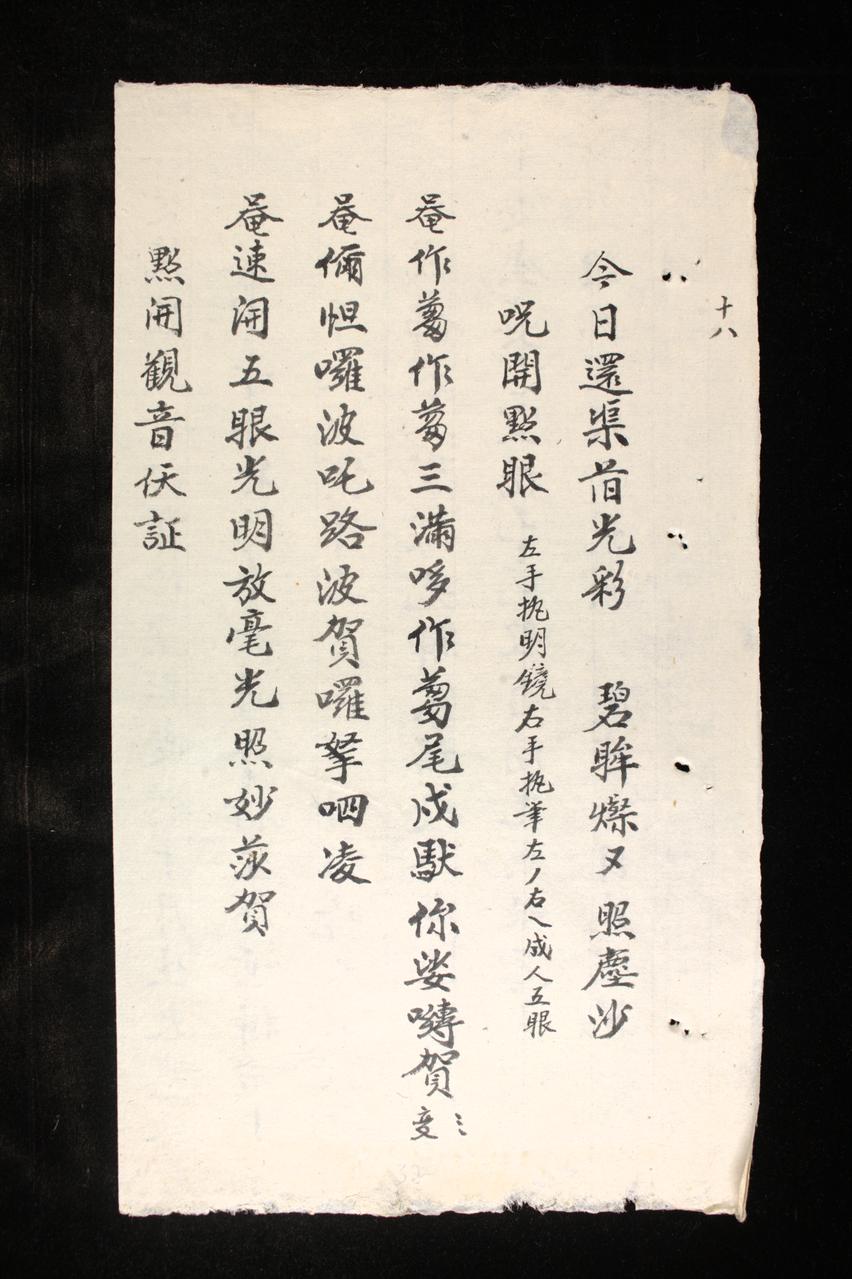 十八
今日還渠旧光彩 碧眸燦又照塵沙
呪開點眼 左手执明鏡右手执筆左ノ右乀成人五眼
唵作蒭作蒭三滿哆作蒭尾戍馱你娑嚩賀 三变
唵儞怛囉波吒路波賀囉拏呬凌
唵速開五眼光明放毫光照妙莎賀
點開觀音伏証